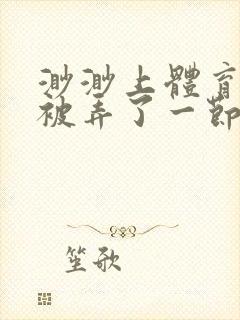 渺渺上體育
被弄了一節
笙歌